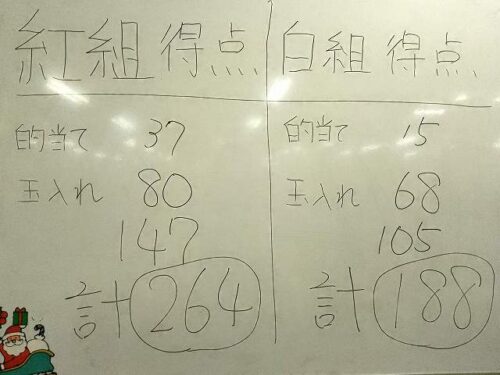 紅組 得点
的当て 37
玉入れ 80
147
計 264
白組 得点
的当て 15
玉入れ 68
105
計 188